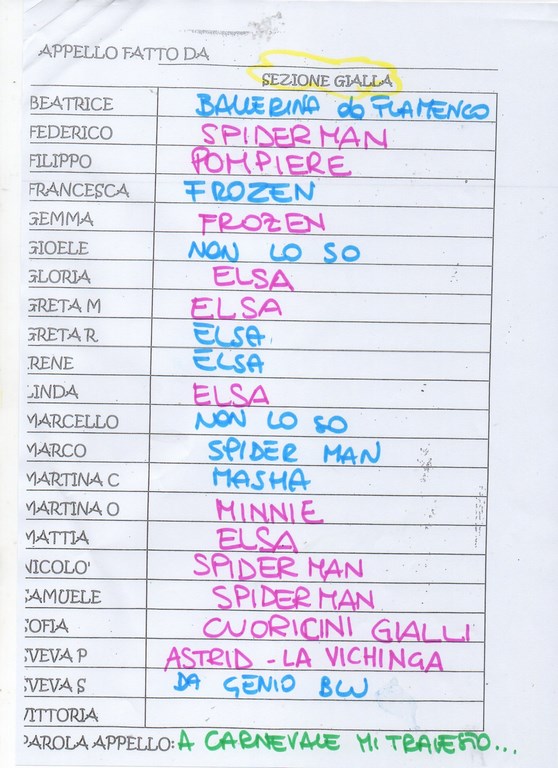 APPELLO FATTO DA
SEZIONE GIALLA
BEATRICE BALLERINA do FLAMENCO
FEDERICO SPIDERMAN
FILIPPO POMPIERE
FRANCESCA FROZEN
GEMMA FROZEN
GIOELE NON LO SO
GLORIA ELSA
GRETA M ELSA
GRETA R ELSA
IRENE ELSA
LINDA ELSA
MARCELLO NON LO SO
MARCO SPIDER MAN
MARTINA C MASHA
MARTINA O MINNIE
MATTIA ELSA
NICOLO' SPIDERMAN
SAMUELE SPIDERMAN
SOFIA CUORICINI GIALLI
SVEVA P ASTRID - LA VICHINGA
SVEVA S DA GENIO BLU
VITTORIA
PAROLA APPELLO: A CARNEVALE MI TRAVESTO...